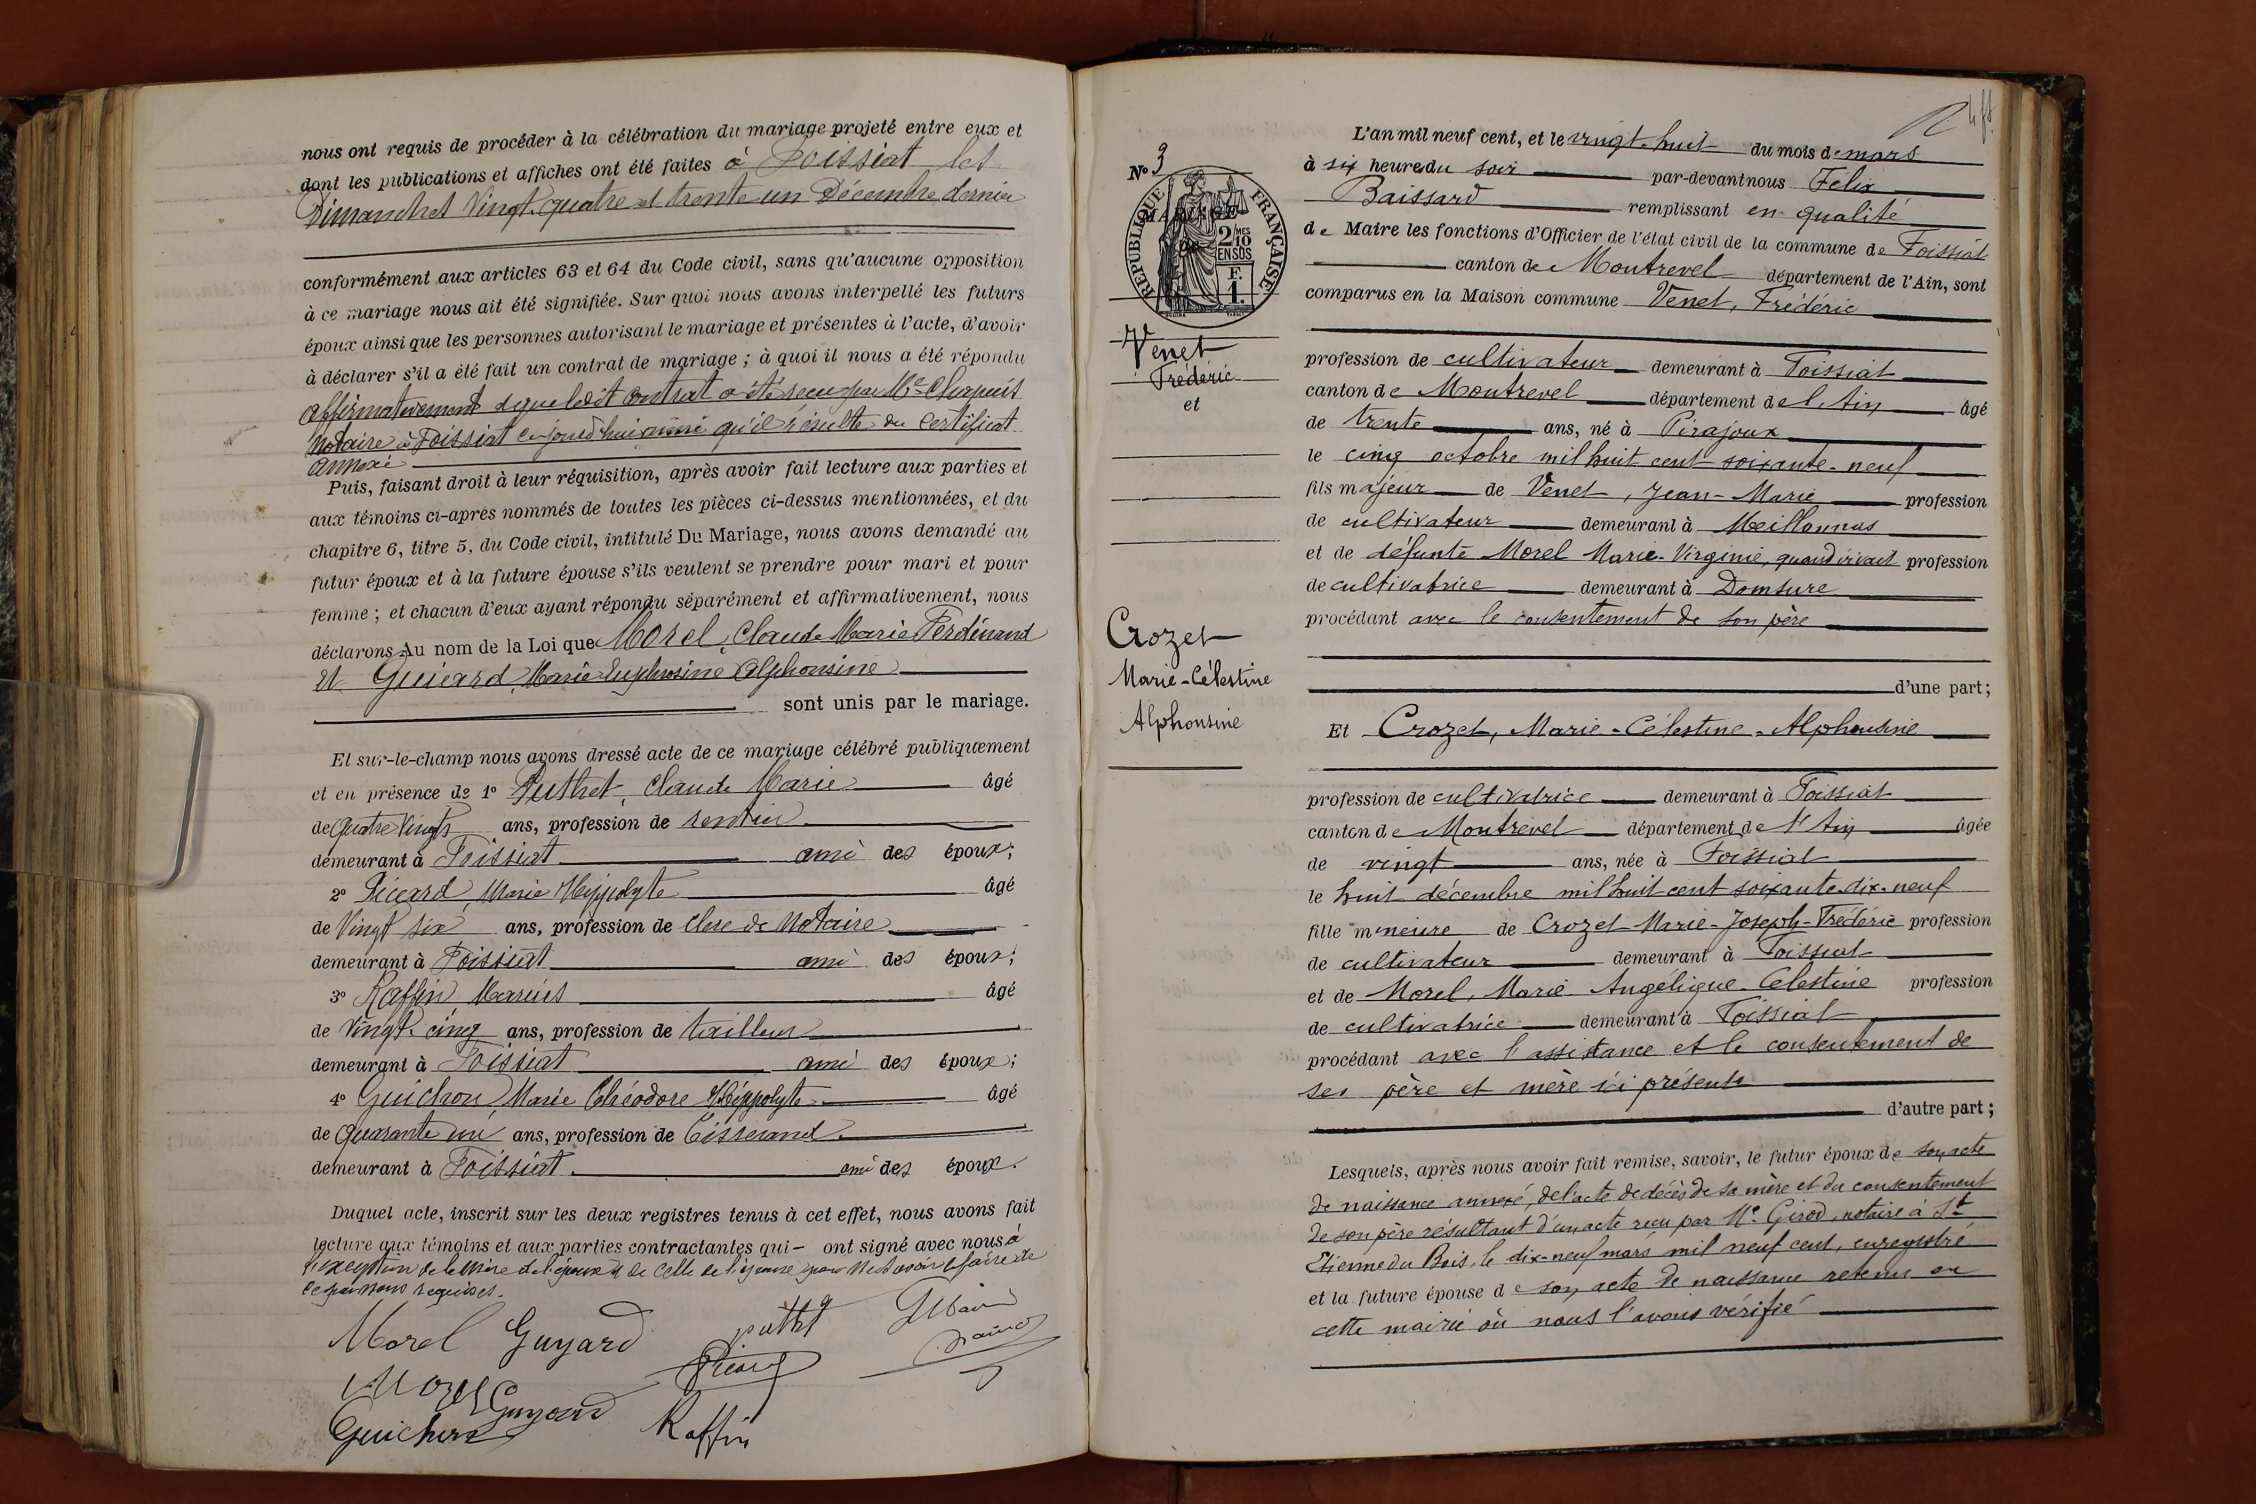 nous ont requis de procéder à la célébration du mariage projeté entre eux et
dont les publications et affiches ont été faites à Foissiat les
Dimanches Vingt quatre et trente un Décembre dernier
conformément aux articles 63 et 64 du Code civil, sans qu'aucune opposition
à ce mariage nous ait été signifiée. Sur quoi nous avons interpellé les futurs
époux ainsi que les personnes autorisant le mariage et présentes à l'acte, d'avoir
à déclarer s'il a été fait un contrat de mariage ; à quoi il nous a été répondu
affirmativement et que ledit contrat a été reçu par Me Chapuis
Notaire à Foissiat ce jourd'hui qu'il résulte du certificat
annexé
Puis, faisant droit à leur réquisition, après avoir fait lecture aux parties et
aux témoins ci-après nommés de toutes les pièces ci-dessus mentionnées, et du
chapitre 6, titre 5, du Code civil, intitulé Du Mariage, nous avons demandé au
futur époux et à la future épouse s'ils veulent se prendre pour mari et pour
femme ; et chacun d'eux ayant répondu séparément et affirmativement, nous
déclarons Au nom de la Loi que Morel, Claude Marie Ferdinand
et Guiard, Marie Euphrosine Alphonsine
sont unis par le mariage.
Et sur-le-champ nous avons dressé acte de ce mariage célébré publiquement
et en présence de 1° Puthet, Claude Marie âgé
de Quatre Vingts ans, profession de rentier
demeurant à Foissiat ami des époux;
2° Picard, Marie Hippolyte âgé
de Vingt six ans, profession de clerc de Notaire
demeurant à Foissiat ami des époux;
3° Raffin Marius âgé
de Vingt-cinq ans, profession de tailleur
demeurant à Foissiat ami des époux;
4° Guichon, Marie Théodore Hippolyte âgé
de Quarante un ans, profession de Tisserand
demeurant à Foissiat ami des époux.
Duquel acte, inscrit sur les deux registres tenus à cet effet, nous avons fait
lecture aux témoins et aux parties contractantes qui - ont signé avec nous à
l'exception de la Mère de l'époux et de celle de l'épouse pour ne le savoir faire de
ce par nous requises.
Morel Guyard puthet
Picard
Morel Guyard
Guichon Raffin
4 ft
N° 3
RÉPUBLIQUE FRANÇAISE
2/10 MES
EN SUS
F.
1.
Venet
Frédéric
et
Crozet
Marie-Célestine
Alphonsine
L'an mil neuf cent, et le vingt-huit du mois de mars
à six heure du soir par-devant nous Félix
Baissard remplissant en qualité
de Maire les fonctions d'Officier de l'état civil de la commune de Foissiat
canton de Montrevel département de l'Ain, sont
comparus en la Maison commune Venet, Frédéric
profession de cultivateur demeurant à Foissiat
canton de Montrevel département de l'Ain âgé
de trente ans, né à Pirajoux
le cinq octobre mil huit cent soixante-neuf
fils majeur de Venet, Jean-Marie profession
de cultivateur demeurant à Meillonnas
et de défunte Morel Marie-Virginie, quand vivait profession
de cultivatrice demeurant à Domsure
procédant avec le consentement de son père
d'une part;
Et Crozet, Marie-Célestine-Alphonsine
profession de cultivatrice demeurant à Foissiat
canton de Montrevel département de l'Ain âgée
de vingt ans, née à Foissiat
le huit décembre mil huit cent soixante-dix-neuf
fille mineure de Crozet Marie-Joseph-Frédéric profession
de cultivateur demeurant à Foissiat
et de Morel, Marie Angélique-Célestine profession
de cultivatrice demeurant à Foissiat
procédant avec l'assistance et le consentement de
ses père et mère ici présents
d'autre part;
Lesquels, après nous avoir fait remise, savoir, le futur époux de son acte
de naissance annexé, de l'acte de décès de sa mère et du consentement
de son père résultant d'un acte reçu par Me. Girod, notaire à St
Etienne du Bois, le dix-neuf mars mil neuf cent, enregistré
et la future épouse de son acte de naissance retenu en
cette mairie où nous l'avons vérifié